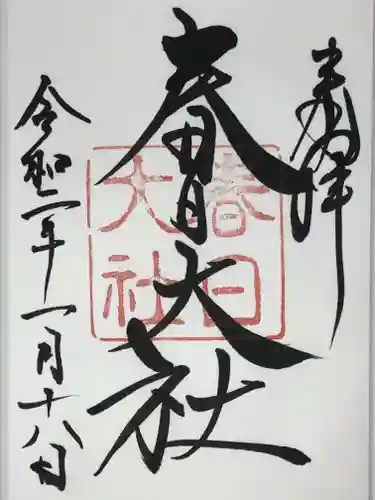 奉拝
春日大社
令和二年一月十八日
春日
大社